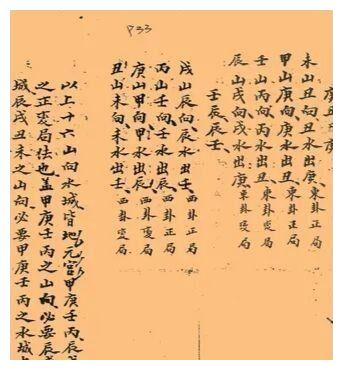 P33
未山丑向丑水出庚 東卦正局
甲山庚向庚水出丑 東卦正局
壬山丙向丙水出丑 東卦变局
辰山戌向戌水出庚 東卦变局
壬辰辰壬
戌山辰向辰水出壬 西卦正局
丙山壬向壬水出辰 西卦正局
庚山甲向甲水出辰 西卦变局
丑山未向未水出壬 西卦变局
以上十六山向水城皆地元宫甲庚壬丙辰
之正变局法也盖甲庚壬丙之山向必要辰
城辰戌丑未之山向必要甲庚壬丙之水城